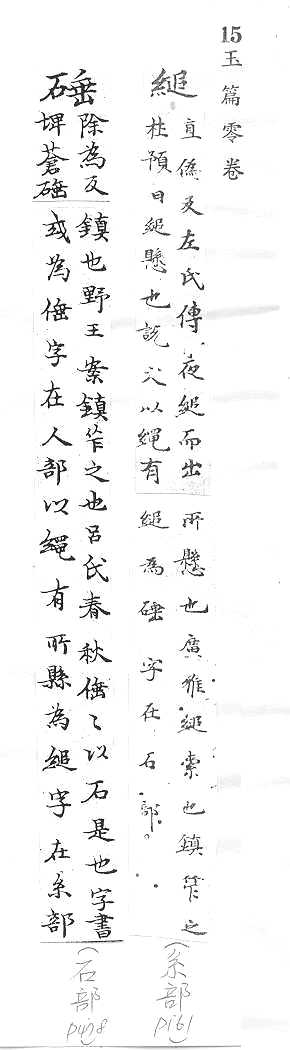 15 玉篇零卷
縋 直偽反左氏傳夜縋而出所懸也廣雅縋索也鎮笮之
杜預曰縋懸也說文以繩有縋為硾字在石部。
(糸部 P161)
硾 除為反鎮也野王案鎮笮之也呂氏春秋倕〻以石是也字書
埤蒼硾或為倕字在人部以繩有所縣為縋字在糸部
(石部 P428)